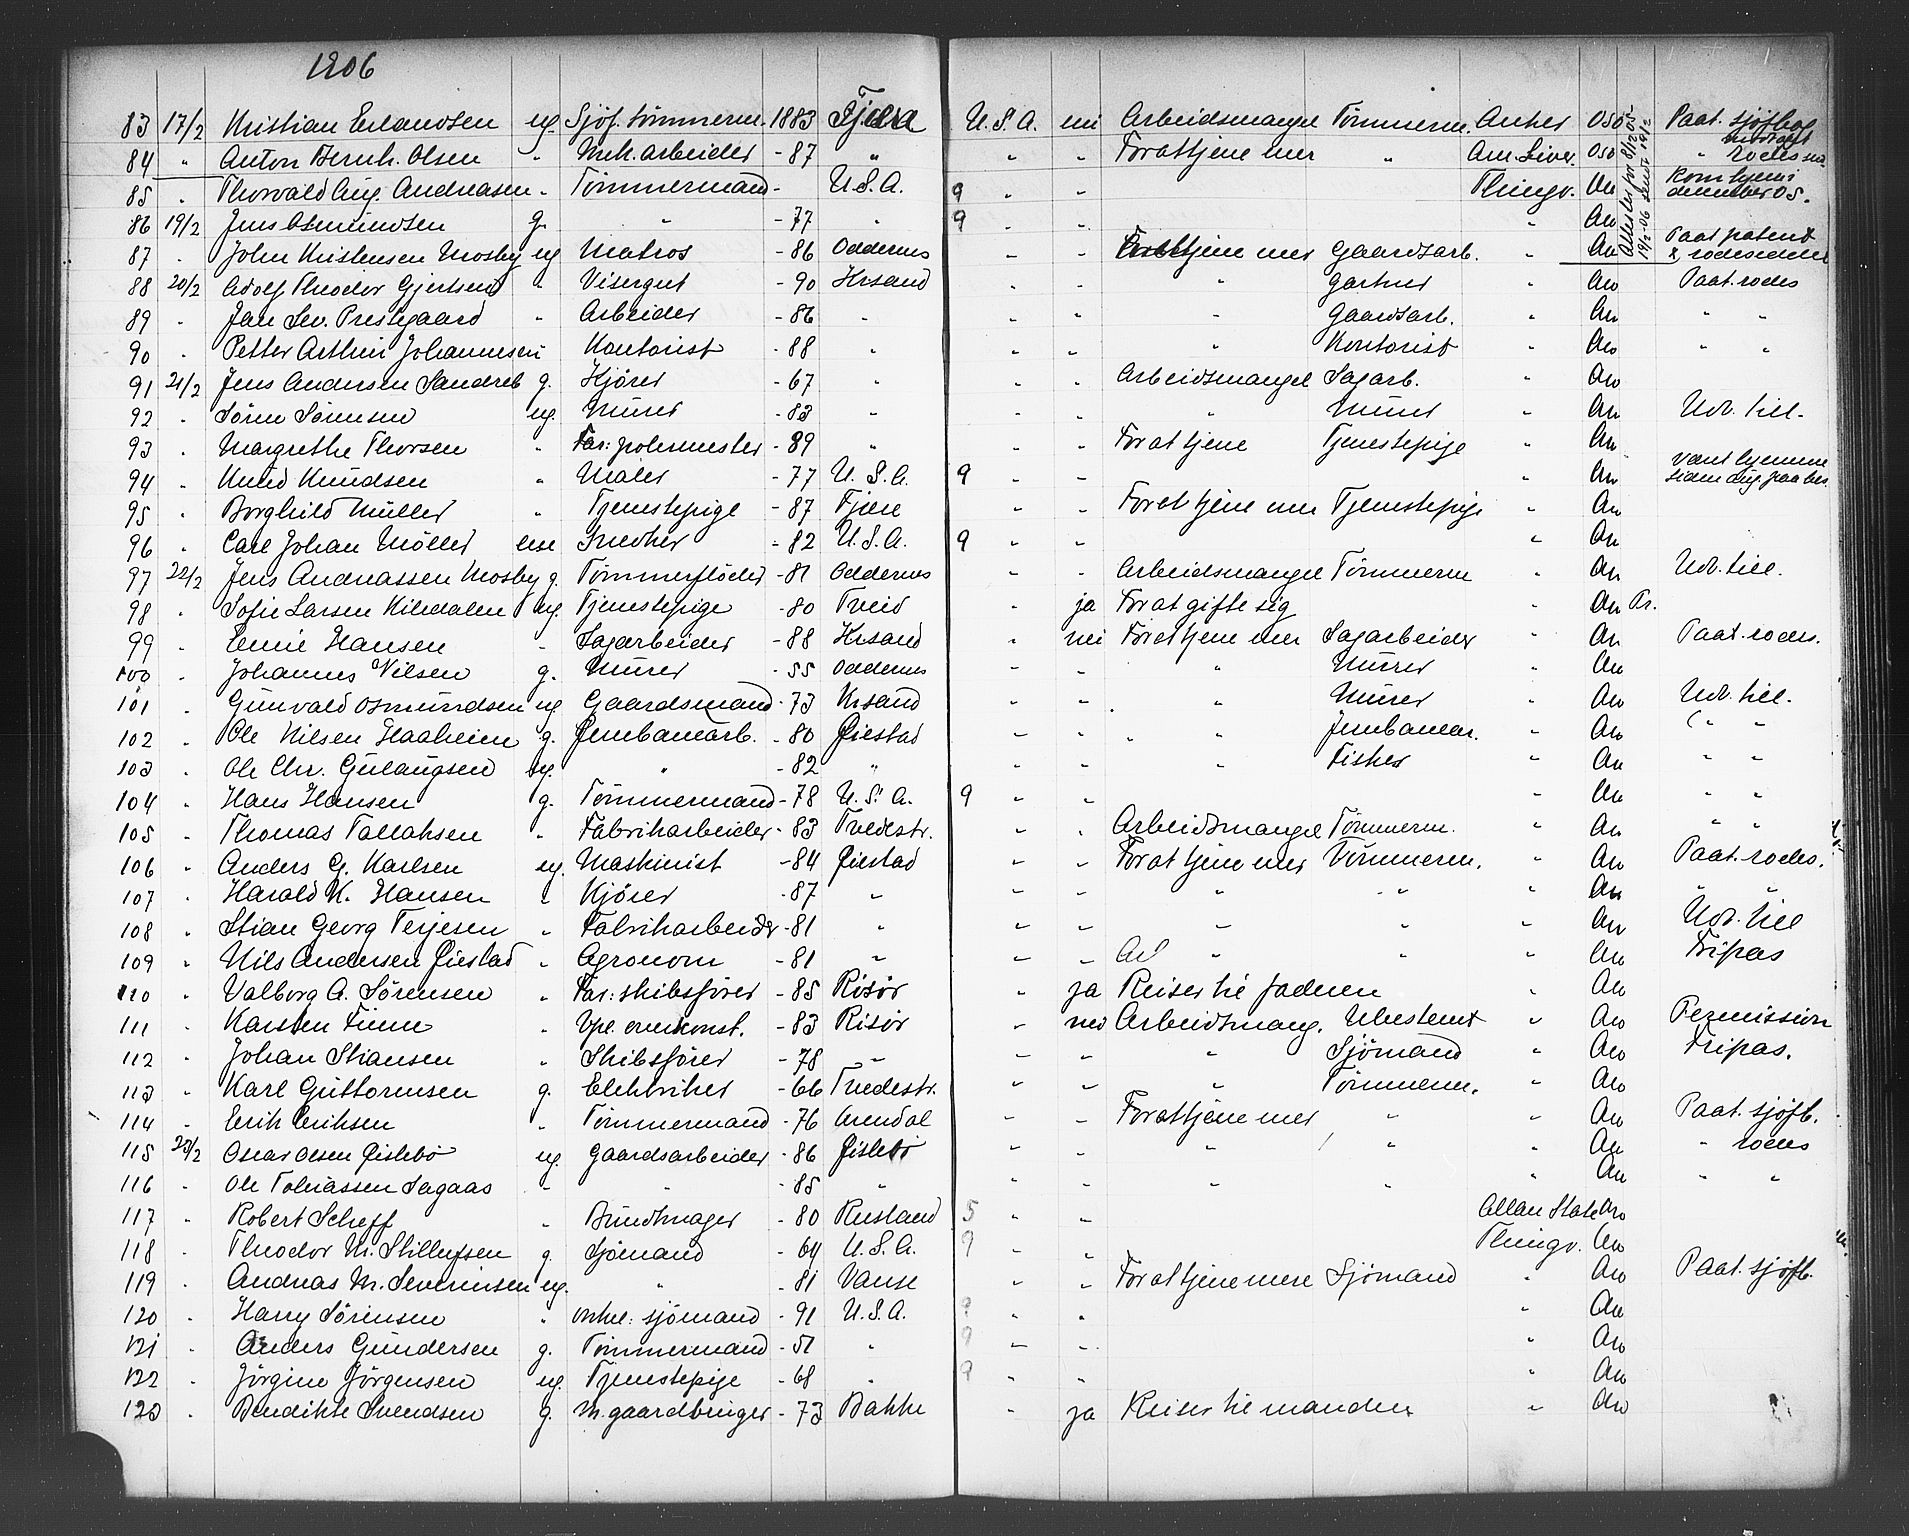 1906
83 17/2 Kristian Erlandsen ug. Sjöf. tömmerm. - 1883 Fjære U.S.A. nei Arbeidsmangel Tömmerm. Anker 050 Paat. sjöfb.
84 " Anton Bernh. Olsen " Mek. arbeider - 87 " " " For at tjene mer " Am. Liver. 050 " rodes
85 " Thorvald Aug. Andreasen " Tömmermand - U.S.A. 9 " " Thingv. An Kom hjem i december 05.
86 19/2 Jens Osmundsen g. " - 77 " 9 " " " An
87 " John Kristensen Mosby ug Matros - 86 Oddernes " " For at tjene mer Gaardsarb. " An Paat. patent & rodeseddel
Attester for 8/12 05 19/2-06 sendt 19/2
88 20/2 Adolf Theodor Gjertsen " Visergut - 90 Krsand " " " Gartner " An Paat. rodes
89 " Jan Sev. Prestegaard " Arbeider - 86 " " " " Gaardsarb. " An " "
90 " Petter Arthur Johannesen Kontorist - 88 " " " " Kontorist " An " "
91 21/2 Jens Andersen Sandreb g. Kjörer - 67 " " " Arbeidsmangel Sagarb. " An
92 " Sörn Sörensen ug. Murer - 83 " " " " Murer " An Udv. till.
93 " Margrethe Thorsen " Far: polermester - 89 " " " For at tjene Tjenestepige " An
94 " Knud Knudsen " Maler - 77 U.S.A. 9 " " " An Vært hjemme siden aug. paa bes.
95 " Borghild Müller " Tjenestepige - 87 Fjære " " For at tjene mer Tjenestepige " An
96 " Carl Johan Möller enke Snedker - 82 U.S.A. 9 " " " An
97 22/2 Jens Andreassen Mosby g. Tömmerflöder - 81 Oddernes " " Arbeidsmangel Tömmerm " An Udv. till.
98 " Sofie Larsen Kiledalen ug. Tjenestepige - 80 Tveid " ja For at gifte sig " An Pr.
99 " Emil Hansen " Sagarbeider - 88 Krsand " nei For at tjene mer Sagarbeider " An Paat. rodes.
100 " Johannes Nilsen g. Murer - 55 Oddernes " " " Murer " An
101 " Gunvald Osmundsen ug Gaardsmand - 73 Krsand " " " Murer " An Udv. till.
102 " Ole Nilsen Haaheim g. Jernbanearb. - 80 Øiestad " " " Jernbanear. " An " "
103 " Ole Chr. Gulaugsen ug. " - 82 " " " " Fisker " An " "
104 " Hans Hansen g. Tömmermand - 78 U.S.A. 9 " " " An " "
105 " Thomas Tallaksen " Fabrikarbeider - 83 Tvedestr. " " Arbeidsmangel Tömmerm. " An " "
106 " Anders G. Karlsen ug. Maskinist - 84 Øiestad " " For at tjene mer Tömmerm. " An Paat. rodes.
107 " Harald K. Hansen " Kjörer - 87 " " " " " " An " "
108 " Stian Georg Terjesen " Fabrikarbeider - 81 " " " " " " An Udv. till
109 " Nils Andersen Øiestad " Agronom - 81 " " " " " " An Fripas
110 " Valborg A. Sörensen " Far: skibsförer - 85 Risör " ja Reiser til faderen " An
111 " Karsten Finne " Vpl. overkonst. - 83 Risör " nei Arbeidsmang. Ubestemt " An Permission
112 " Johan Stiansen " Skibsförer - 78 " " " " Sjömand " An Fripas.
113 " Karl Guttormsen g. Elektriker - 66 Tvedestr. " " " Tömmerm. " An
114 " Erik Eriksen " Tömmermand - 76 Arendal " " For at tjene mer " " An Paat. sjöfb.
115 23/2 Oscar Olsen Øislebö ug. Gaardsarbeider - 86 Øislebö " " " " " An " rodes
116 " Ole Tobiassen Sagaas " " - 85 " " " " " " An " "
117 " Robert Scheff " Bundtmager - 80 Rusland 5 " " Allan State An
118 " Theodor M. Stillufsen g. Sjömand - 64 U.S.A. 9 " " Thingv. An
119 " Andreas M. Severinsen ug. " - 81 Vanse " " For at tjene mere Sjömand " An Paat. sjöfb.
120 " Harry Sörensen " onkel: sjömand - 91 U.S.A. 9 " " " An
121 " Anders Gundersen g. Tömmermand - 51 " 9 " " " An
122 " Jörgine Jörgensen ug. Tjenestepige - 68 " 9 " " " An
123 " Bendikte Svendsen g. M. gaardbruger - 73 Bakke " ja Reiser til manden " An